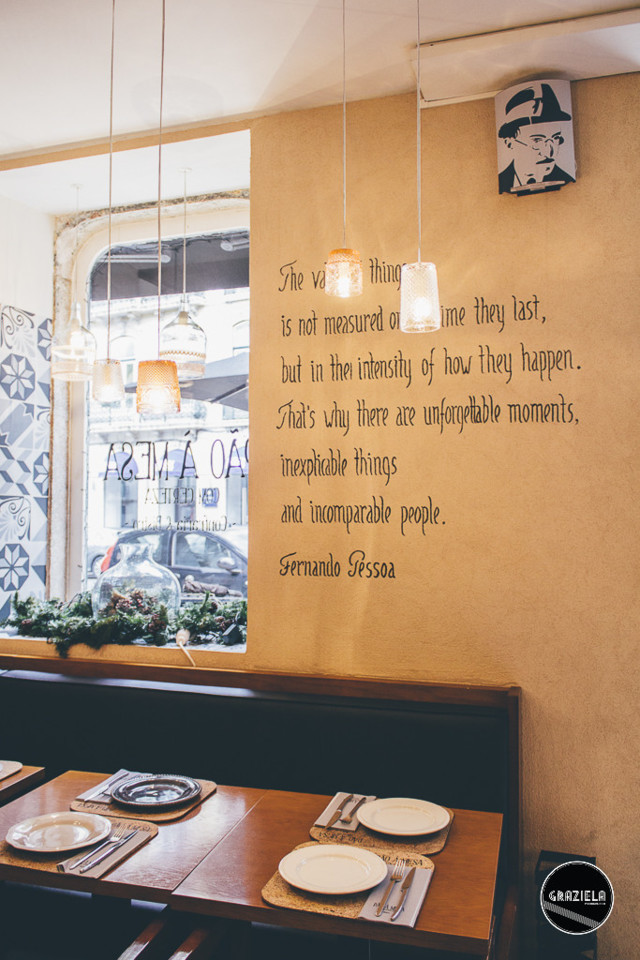 The things
is not measured time they last,
but in their intensity of how they happen.
That's why there are unforgettable moments,
inexplicable things
and incomparable people.
Fernando Pessoa
PÃO À MESA
COM CERTEZA
GRAZIELA